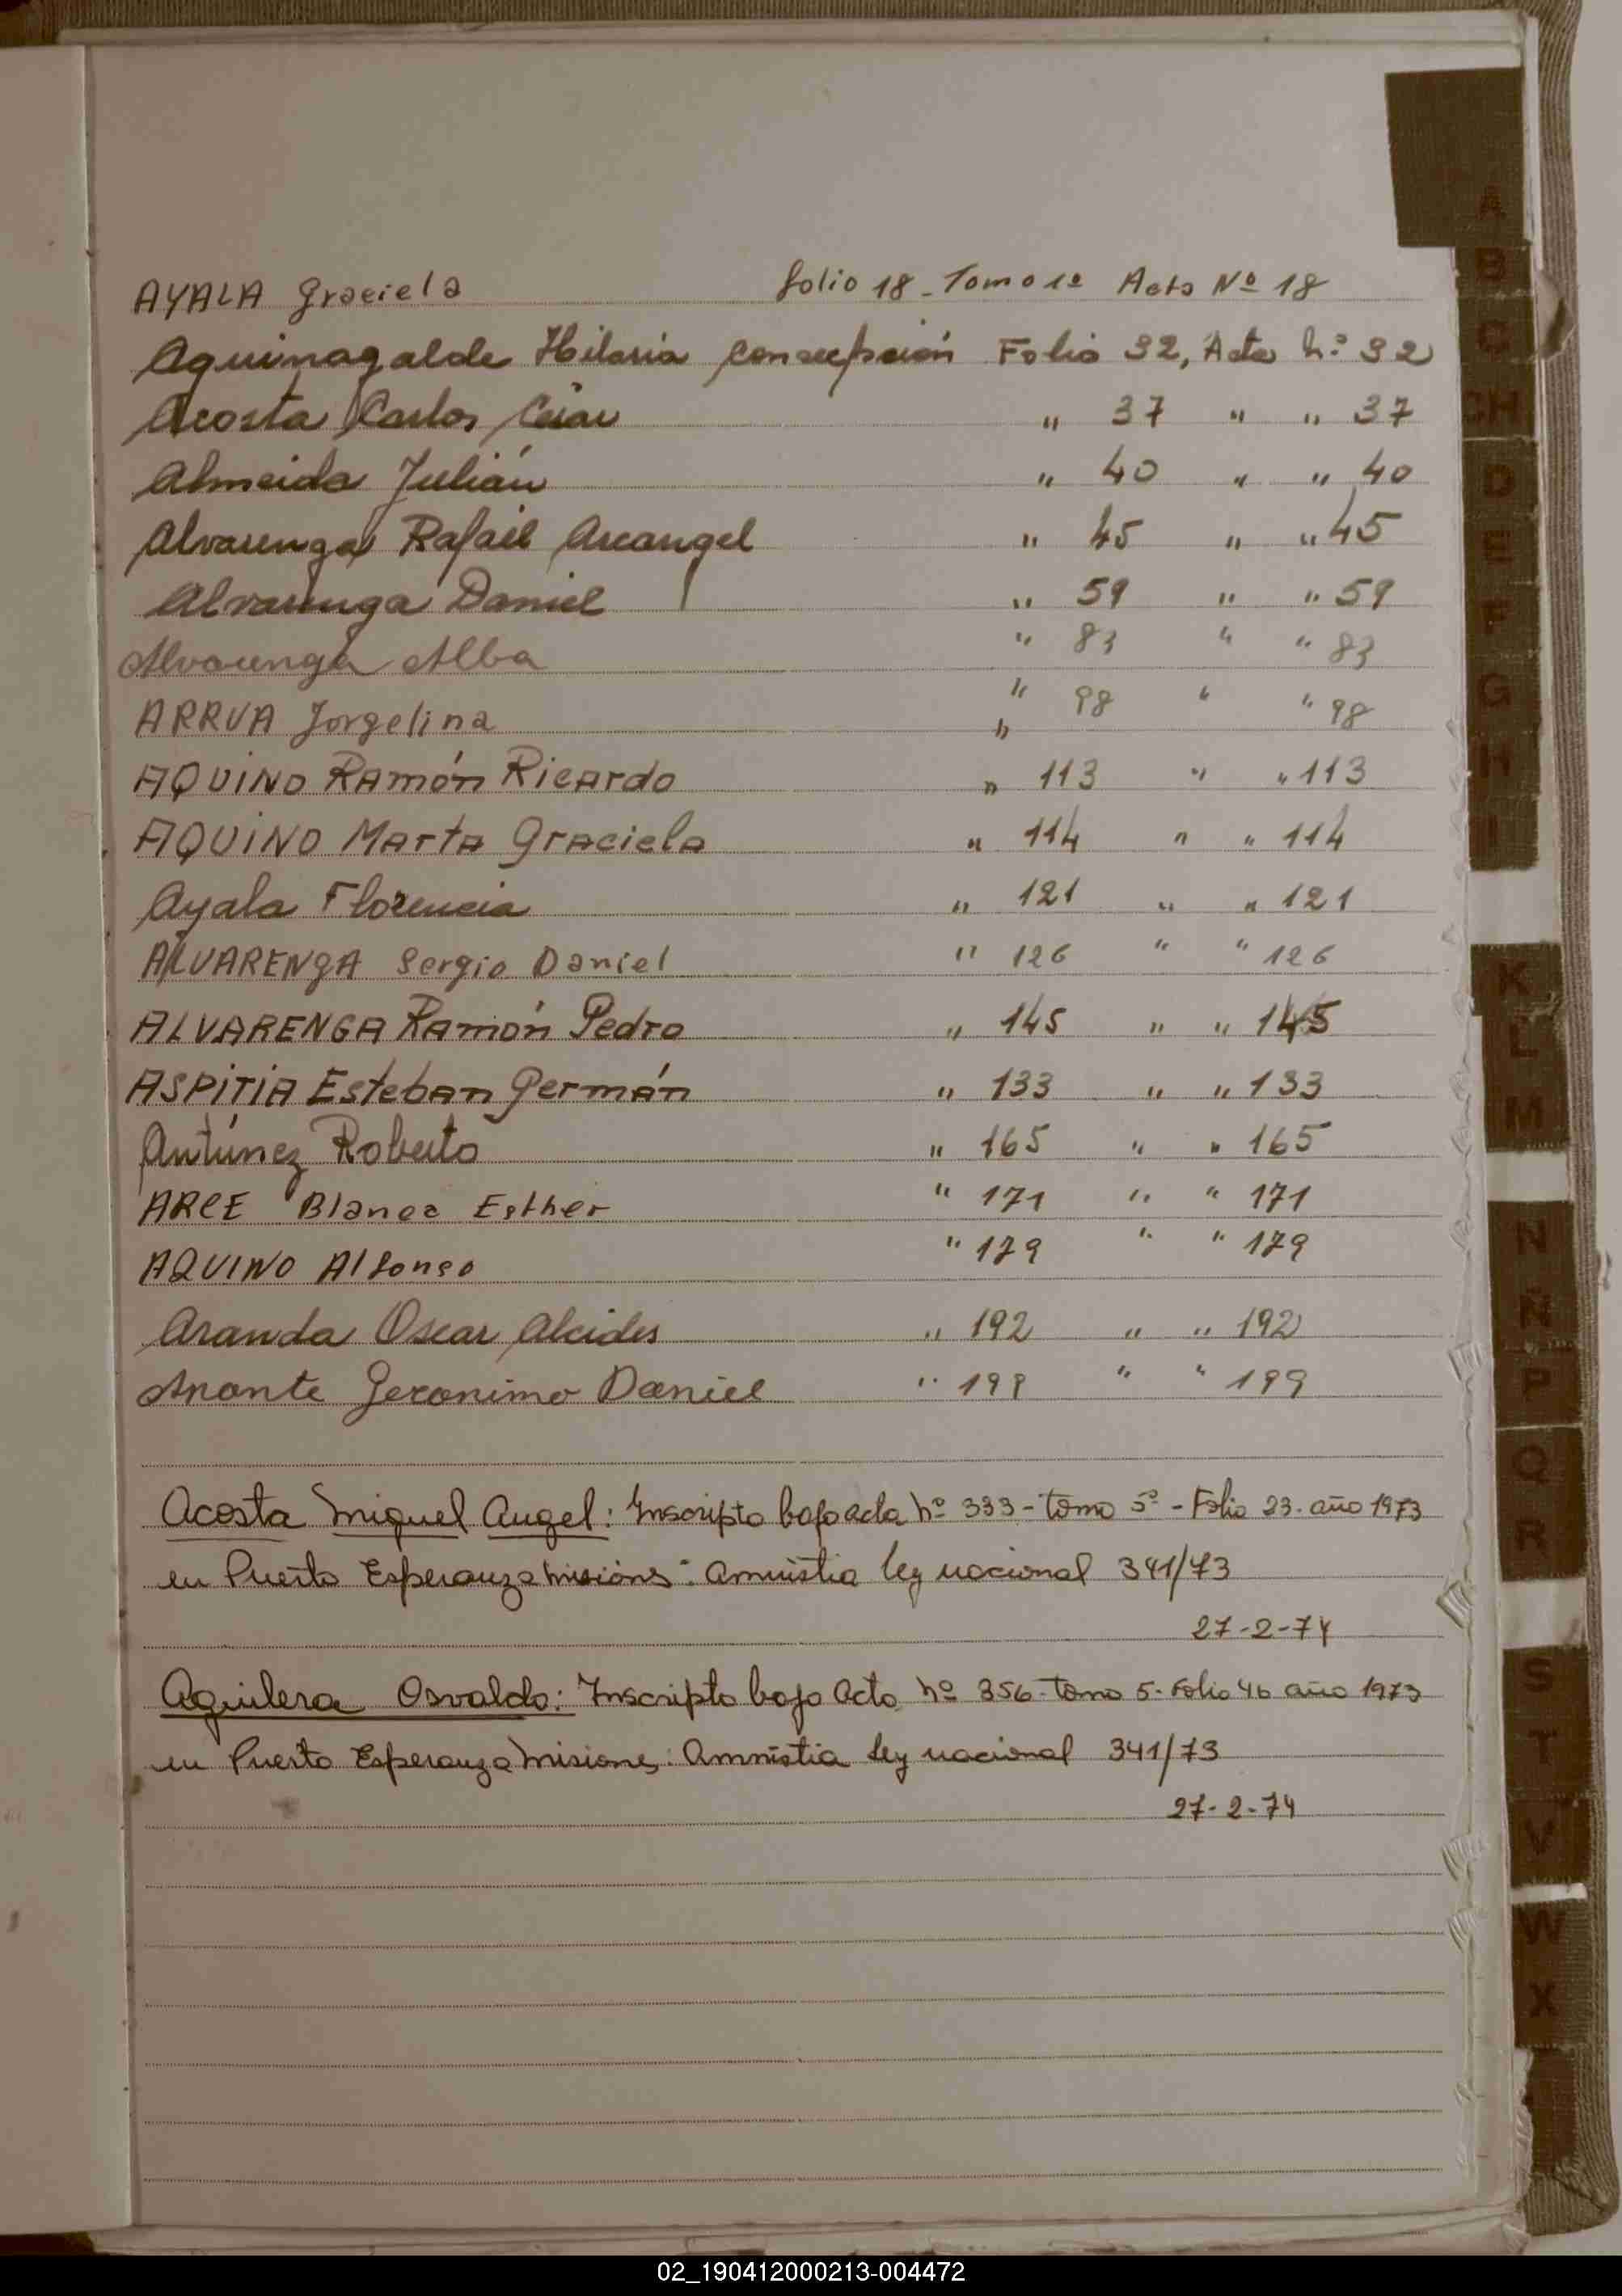 AYALA Graciela folio 18 - Tomo 1º Acta Nº 18
Aquinagalde Hilaria Concepción Folio 32, Acta n.º 32
Acosta Carlos César " 37 " " 37
Almeida Julián " 40 " " 40
Alvarenga Rafael Arcangel " 45 " " 45
Alvarenga Daniel " 59 " " 59
Alvarenga Alba " 83 " " 83
ARRUA Jorgelina " 98 " " 98
"
AQUINO Ramón Ricardo " 113 " " 113
AQUINO Marta Graciela " 114 " " 114
Ayala Florencia " 121 " " 121
ALVARENGA Sergio Daniel " 126 " " 126
ALVARENGA Ramón Pedro " 145 " " 145
ASPITIA Esteban Germán " 133 " " 133
Antúnez Roberto " 165 " " 165
ARCE Blanca Esther " 171 " " 171
AQUINO Alfonso " 179 " " 179
Aranda Oscar Alcides " 192 " " 192
Geronimo Daniel " 199 " " 199
Acosta Miguel Angel: Inscripto bajo acta nº 333 - tomo 5º - Folio 23. año 1973
en Puerto Esperanza Misiones: Amnistia ley nacional 341/73
27-2-74
Aguilera Osvaldo: Inscripto bajo Acta nº 356 - tomo 5 - Folio 46 año 1973
en Puerto Esperanza Misiones: Amnistia ley nacional 341/73
27-2-74
A
B
C
CH
D
E
F
G
H
I
K
L
M
N
Ñ
P
Q
R
S
T
V
W
X
02_190412000213-004472